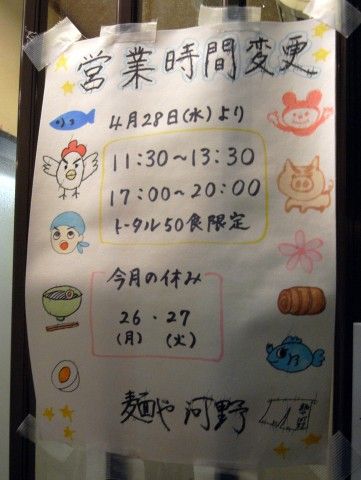 営業時間変更
4月28日(水)より
11:30~13:30
17:00~20:00
トータル50食限定
今月の休み
26・27
(月) (火)
麺や 河野